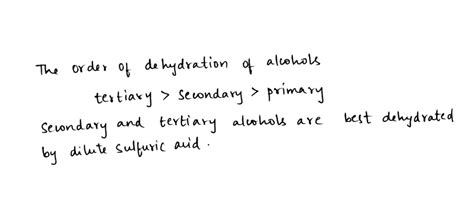 The order of dehydration of alcohols
tertiary > secondary > primary
secondary and tertiary alcohols are best dehydrated
by dilute sulfuric acid.